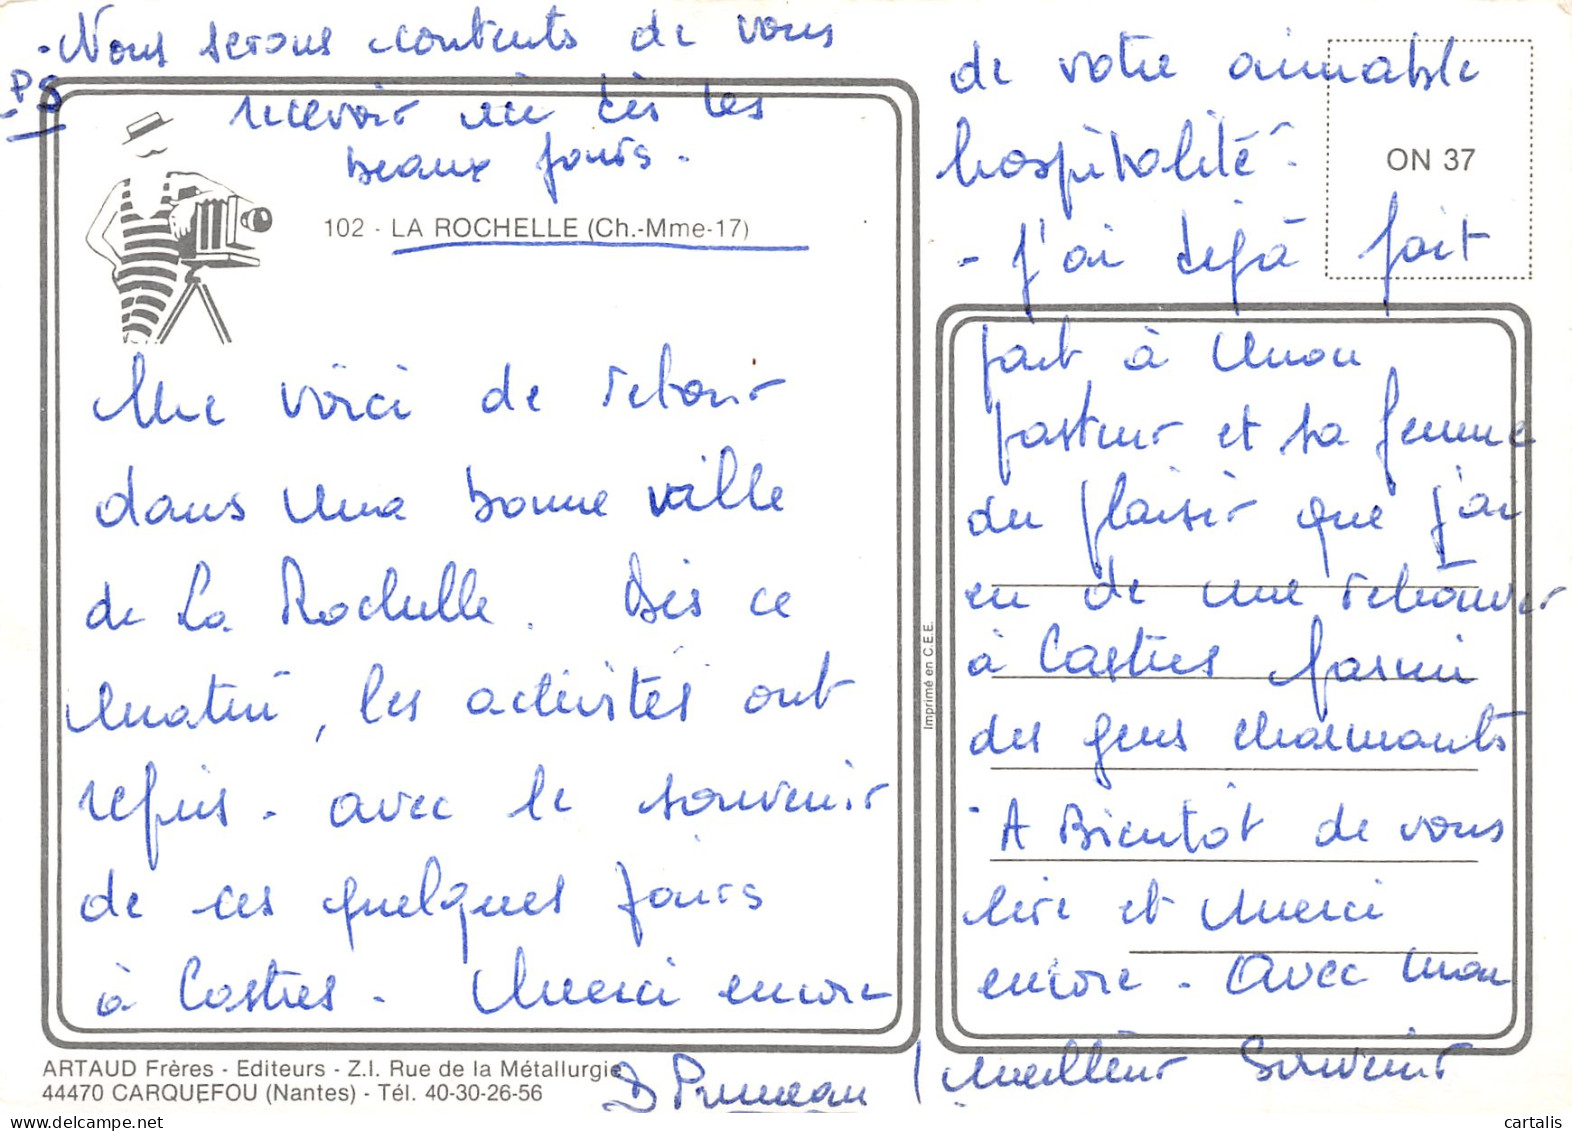 - Nous serons contents de vous
PS
recevoir ici dès les
beaux jours.
102 - LA ROCHELLE (Ch.-Mme-17)
Me voici de retour
dans ma bonne ville
de La Rochelle. Dès ce
matin, les activités ont
repris. avec le souvenir
de ces quelques jours
à Castres. Merci encore
de votre aimable
hospitalité.
- J'ai déjà fait
part à mon
pasteur et sa femme
du plaisir que j'ai
eu de me retrouver
à Castres parmi
des gens charmants
- A Bientôt de vous
lire et merci
encore. Avec mon
meilleur souvenir
ON 37
Imprimé en C.E.E.
ARTAUD Frères - Editeurs - Z.I. Rue de la Métallurgie
44470 CARQUEFOU (Nantes) - Tél. 40-30-26-56
www.cartalis.com
cartalis